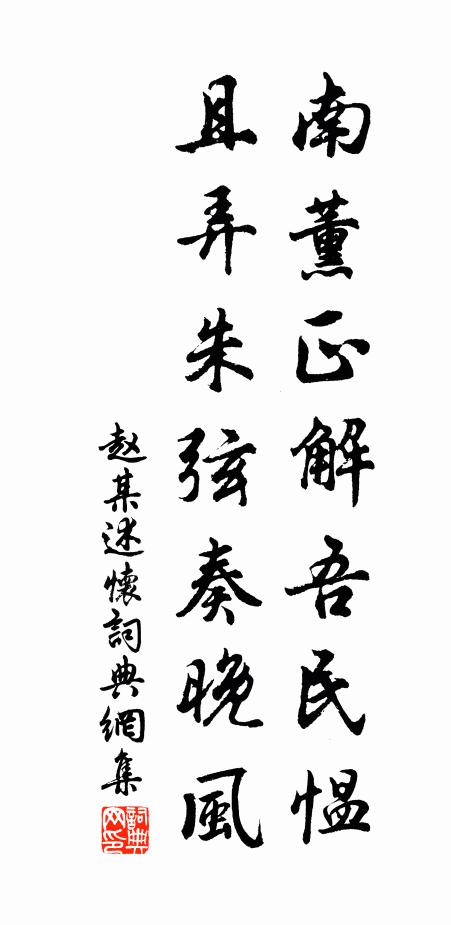 南薰正解吾民愠
且弄朱弦奏晚風
赵某述懷詞典網集
詞典网印